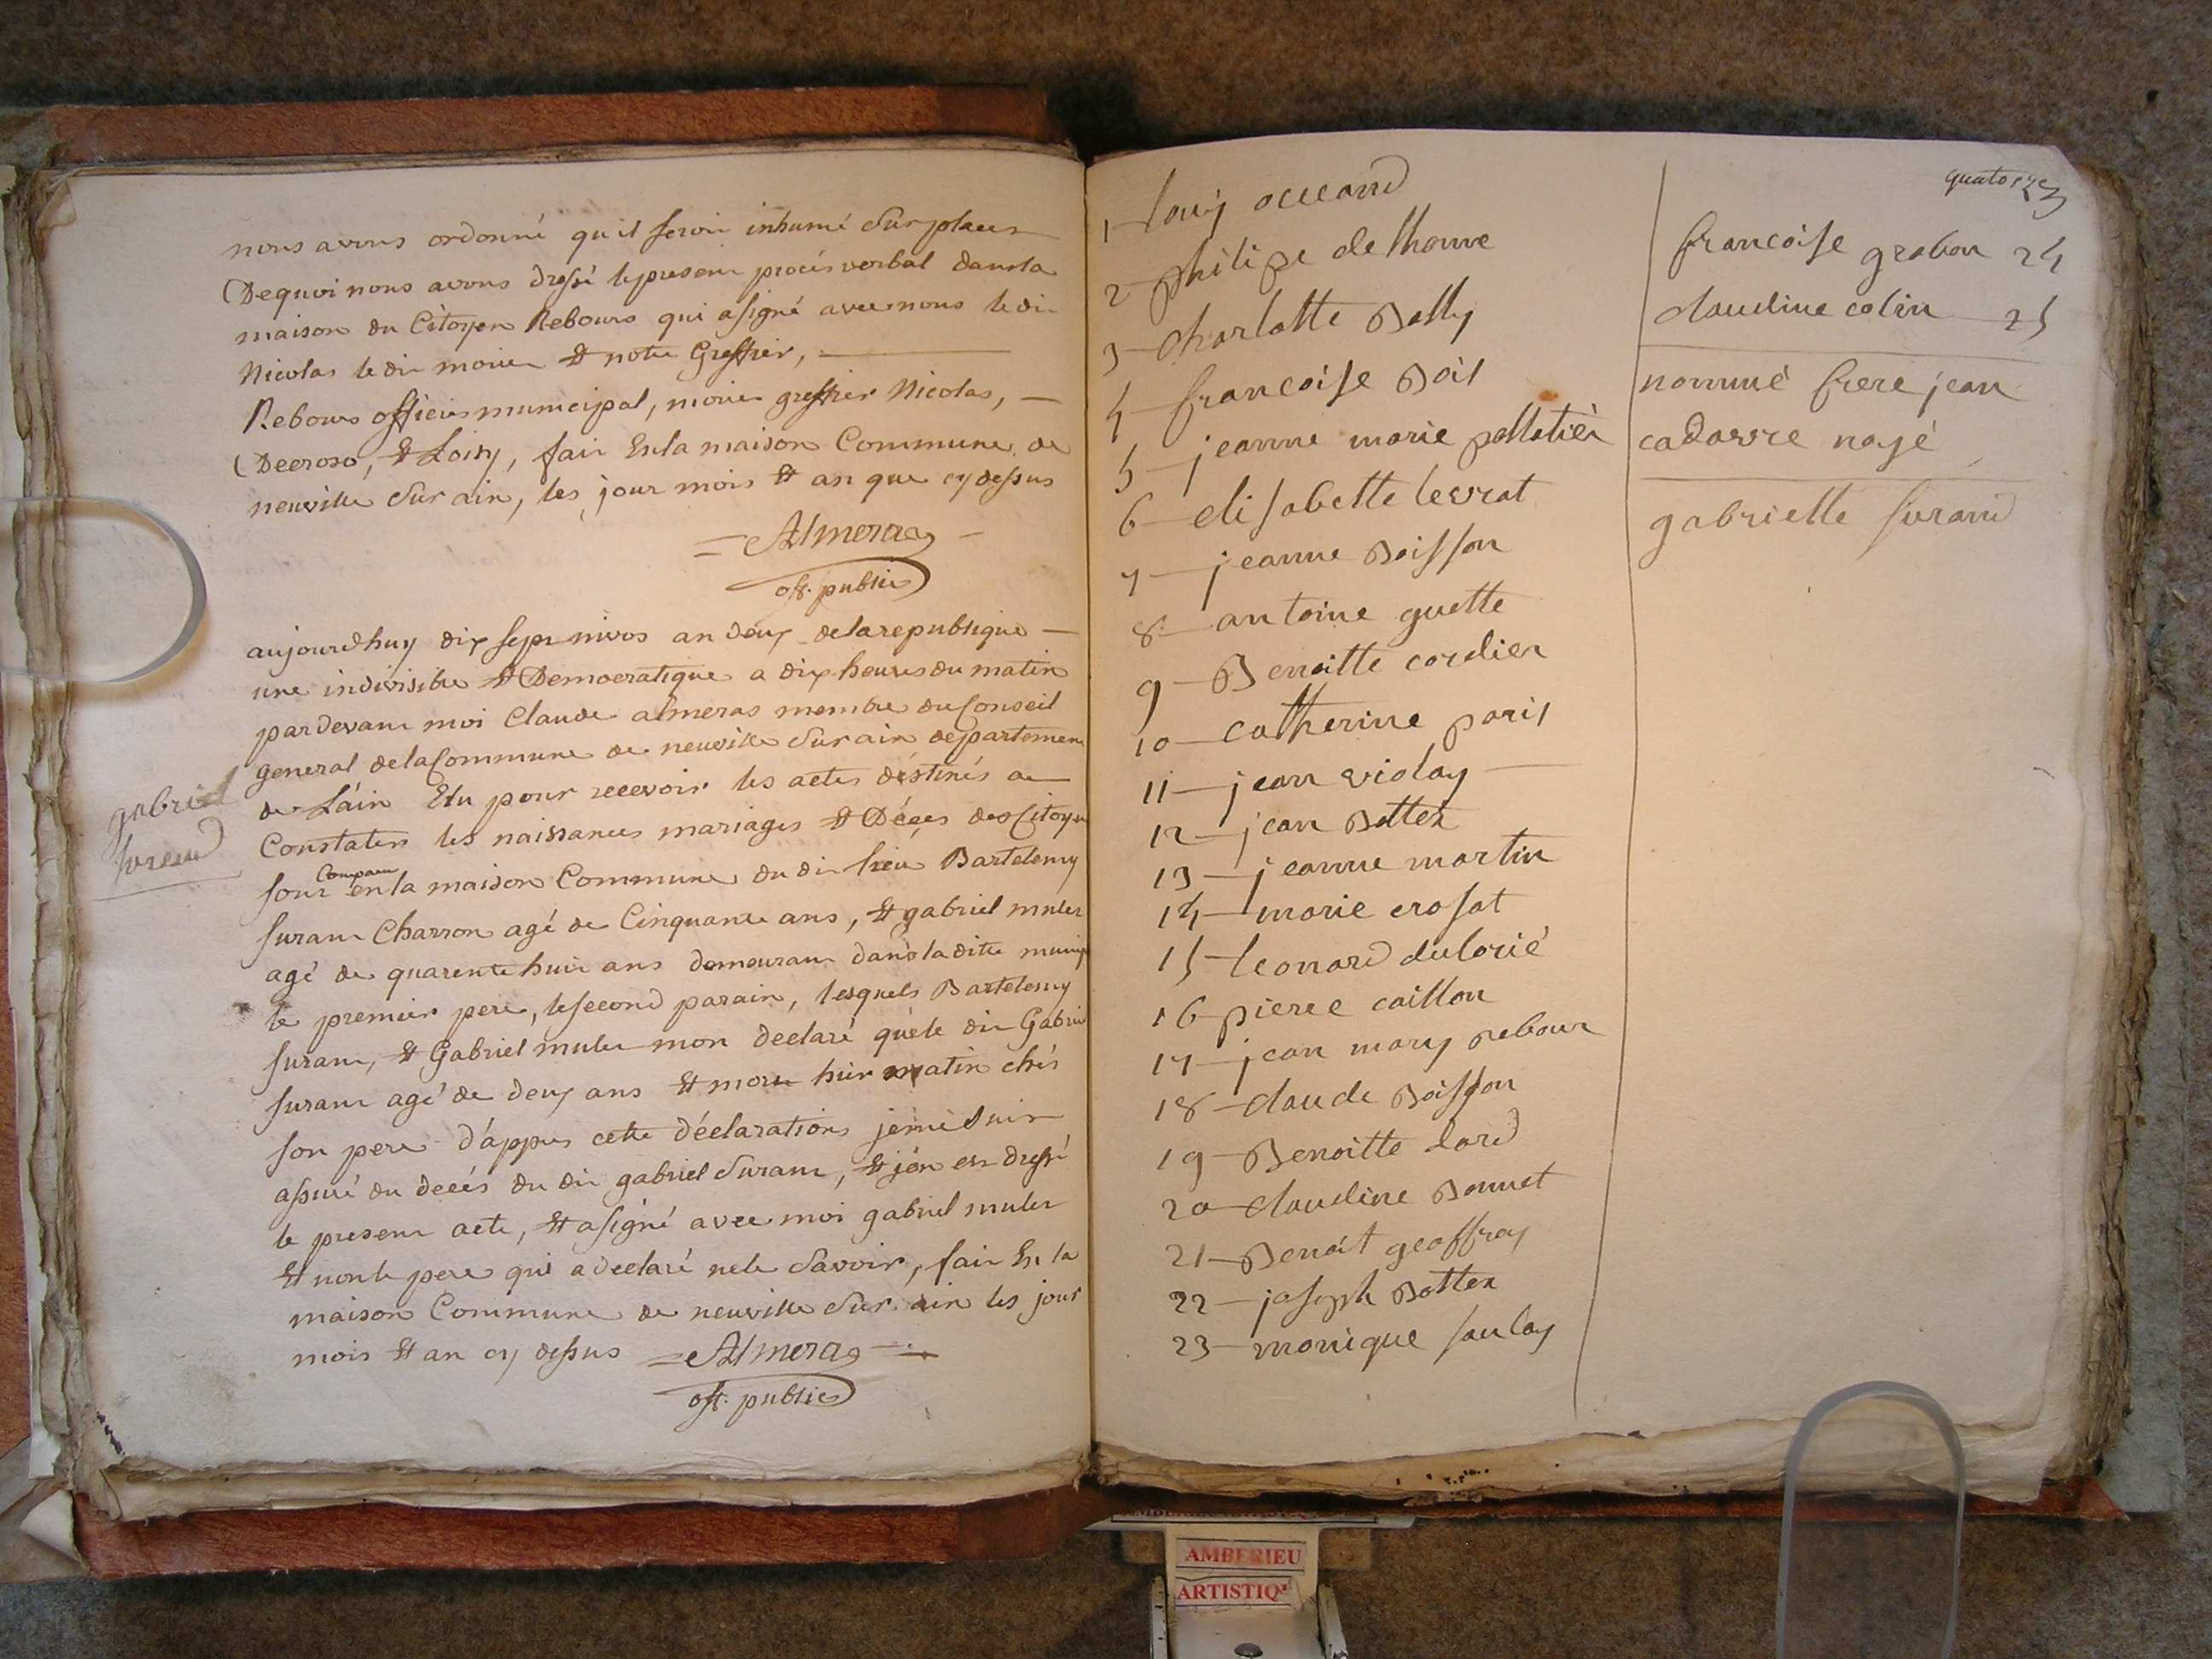 nous avons ordonné qu'il seroit inhumé sur place
De quoi nous avons dressé le present procés verbal dans la
maison du Citoyen Rebours qui a signé avec nous le dit
Nicolas le dit moine & notre Greffier,
Rebours officier municipal, moine greffier Nicolas,
Decroso, & Loisy, fait En la maison Commune de
neuville sur ain, les jour mois & an que cy dessus
Almeras
off. public
aujourdhuy dix sept nivos an deux de la republique
une indivisible & Democratique a dix heures du matin
pardevant moi Claude almeras membre du Conseil
general de la Commune de neuville sur ain departement
de L'ain Elu pour recevoir les actes destinés a
Constater les naissances mariages & Décès des Citoyens
gabriel
surand
Comparu
sont en la maison Commune du dit lieu Bartelemy
surant Charron agé de Cinquante ans, & gabriel muler
agé de quarente huit ans demeurant dans la ditte municip
le premier pere, le second parain, lesquels Bartelemy
surant, & Gabriel muler mon declaré que le dit Gabriel
surant agé de deux ans & mort hier matin chés
son pere d'appres cette déclarations je me suis
assuré du decés du dit gabriel Surant, & j'en est dressé
le present acte, & a signé avec moi gabriel muler
& non le pere qui a declaré ne le savoir, fait En la
maison Commune de neuville sur ain les jour
mois & an cy dessus Almeras
off. public
quatorze
1 louis occeand
2 philipe delhome
3 charlotte Bolly
4 francoise Bois
5 jeanne marie pelletier
6 elisabette levrat
7 jeanne Boisson
8 antoine guette
9 Benoitte cordier
10 catherine paris
11 jean violay
12 jean Bottex
13 jeanne martin
14 marie crosat
15 leonard dulorié
16 pierre caillon
17 jean mary rebour
18 claude Boisson
19 Benoitte dard
20 claudine Bonnet
21 Benoit geoffray
22 joseph Bottex
23 monique saulay
francoise grabou 24
claudine colin 25
nommé frere jean
cadavre nayé
gabrielle surand
AMBERIEU
ARTISTIQ